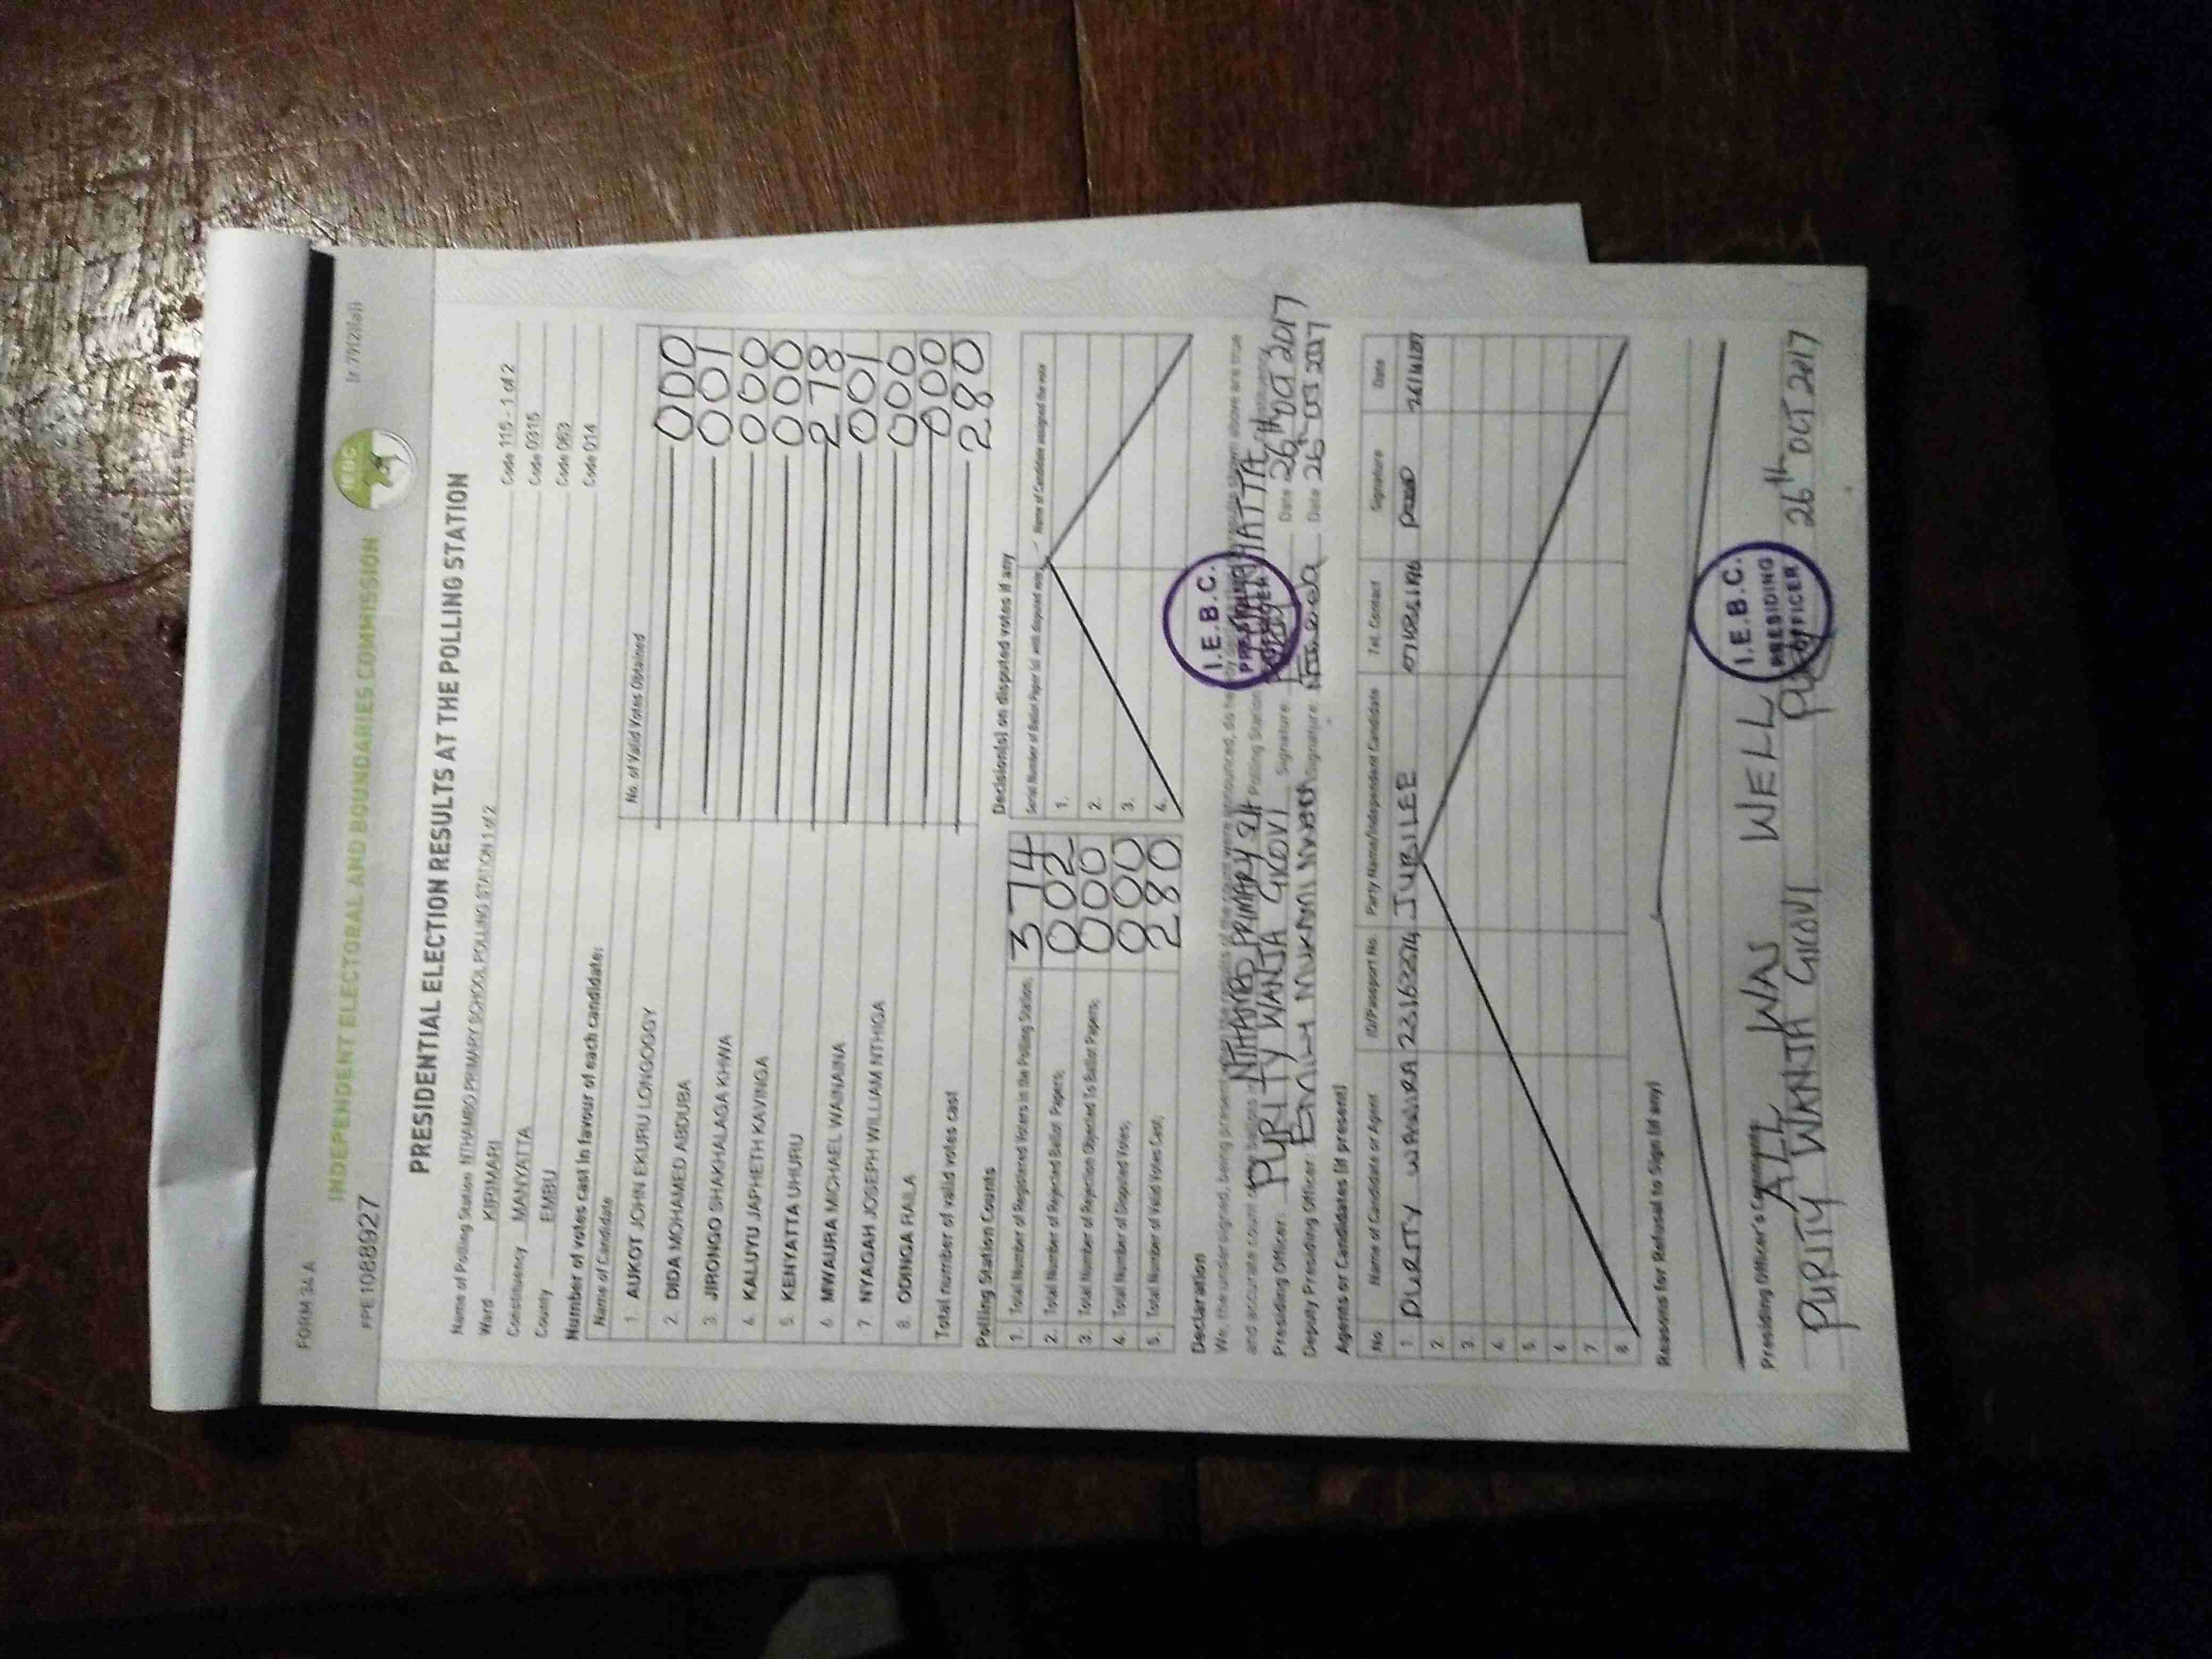 FORM 34 A
[r 79(2)(a)]
INDEPENDENT ELECTORAL AND BOUNDARIES COMMISSION
IEBC
PPE1088927
PRESIDENTIAL ELECTION RESULTS AT THE POLLING STATION
Name of Polling Station NTHAMBO PRIMARY SCHOOL POLLING STATION 1 of 2 Code 115 - 1 of 2
Ward KIRIMARI Code 0315
Constituency MANYATTA Code 063
County EMBU Code 014
Number of votes cast in favour of each candidate:
Name of Candidate No. of Valid Votes Obtained
1. AUKOT JOHN EKURU LONGOGGY 000
2. DIDA MOHAMED ABDUBA 001
3. JIRONGO SHAKHALAGA KHWA 000
4. KALUYU JAPHETH KAVINGA 000
5. KENYATTA UHURU 278
6. MWAURA MICHAEL WAINAINA 001
7. NYAGAH JOSEPH WILLIAM NTHIGA 000
8. ODINGA RAILA 000
Total number of valid votes cast 280
Polling Station Counts
1. Total Number of Registered Voters in the Polling Station; 374
2. Total Number of Rejected Ballot Papers; 002
3. Total Number of Rejection Objected To Ballot Papers; 000
4. Total Number of Disputed Votes; 000
5. Total Number of Valid Votes Cast; 280
Decision(s) on disputed votes if any
Serial Number of Ballot Paper (s) with disputed vote Name of Candidate assigned the vote
1.
2.
3.
4.
Declaration
We, the undersigned, being present when the results of the count were announced, do hereby declare that the results shown above are true
and accurate count of the ballots in NTHAMBO PRIMARY SCH Polling Station MANYATTA Constituency
Presiding Officer: PURITY WANJA GICOVI Signature: Date 26th OCT 2017
Deputy Presiding Officer: EMILY Signature: Date 26th OCT 2017
I.E.B.C.
PRESIDING
OFFICER
Agents or Candidates (if present)
No. Name of Candidate or Agent ID/Passport No. Party Name/Independent Candidate Tel. Contact Signature Date
1. PURITY JUBILEE
2.
3.
4.
5.
6.
7.
8.
Reasons for Refusal to Sign (if any)
Presiding Officer's Comments
ALL WAS WELL
PURITY WANJA GICOVI 26th OCT 2017
I.E.B.C.
PRESIDING
OFFICER